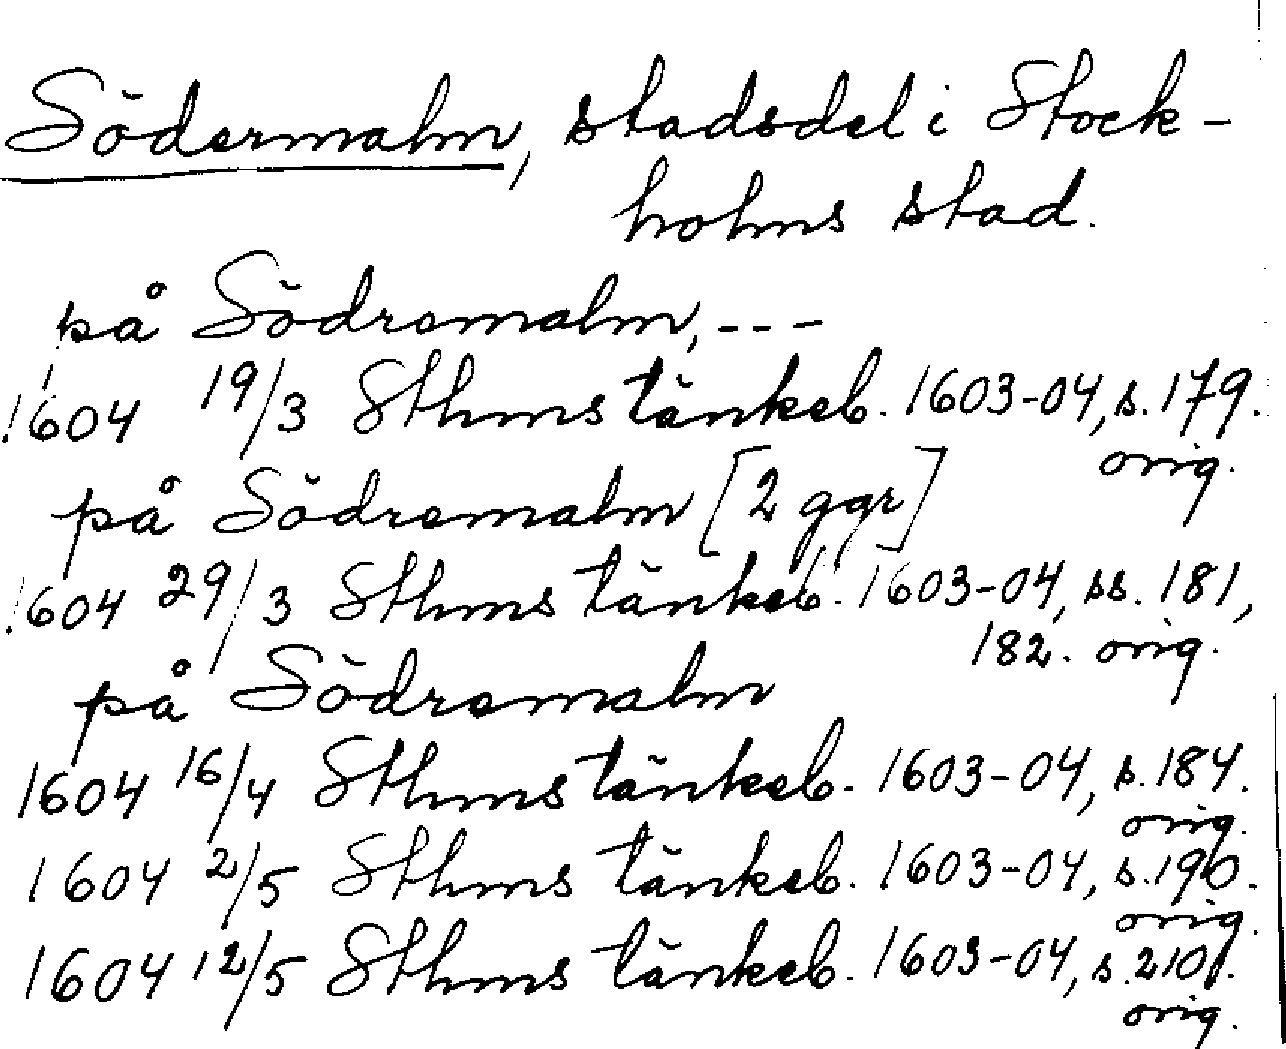 Södermalm, stadsdel i Stock-
holms stad.
på Södremalm, ---
1604 19/3 Sthms tänkeb. 1603-04, s. 179.
orig.
på Södremalm [2 ggr]
1604 29/3 Sthms tänkeb. 1603-04, ss. 181,
182. orig.
på Södremalm
1604 16/4 Sthms tänkeb. 1603-04, s. 184.
orig.
1604 2/5 Sthms tänkeb. 1603-04, s. 190.
orig.
1604 12/5 Sthms tänkeb. 1603-04, s. 210.
orig.